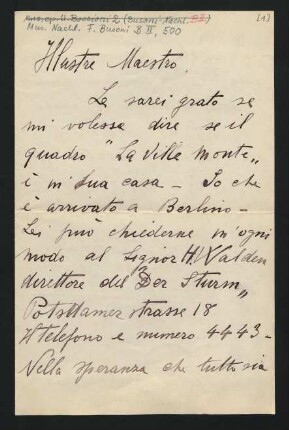 Mus.ep. U. Boccioni 2 (Busoni-Nachl. B II) [1]
Mus. Nachl. F. Busoni B II, 500
Illustre Maestro,
Le sarei grato se
mi volesse dire se il
quadro "La Ville Monte„
è in sua casa - So che
è arrivato a Berlino -
Lei può chiederne in ogni
modo al Signor H. Walden
direttore del "Der Sturm„
Potsdamer strasse 18
Il telefono è numero 4443 -
Nella speranza che tutto sia